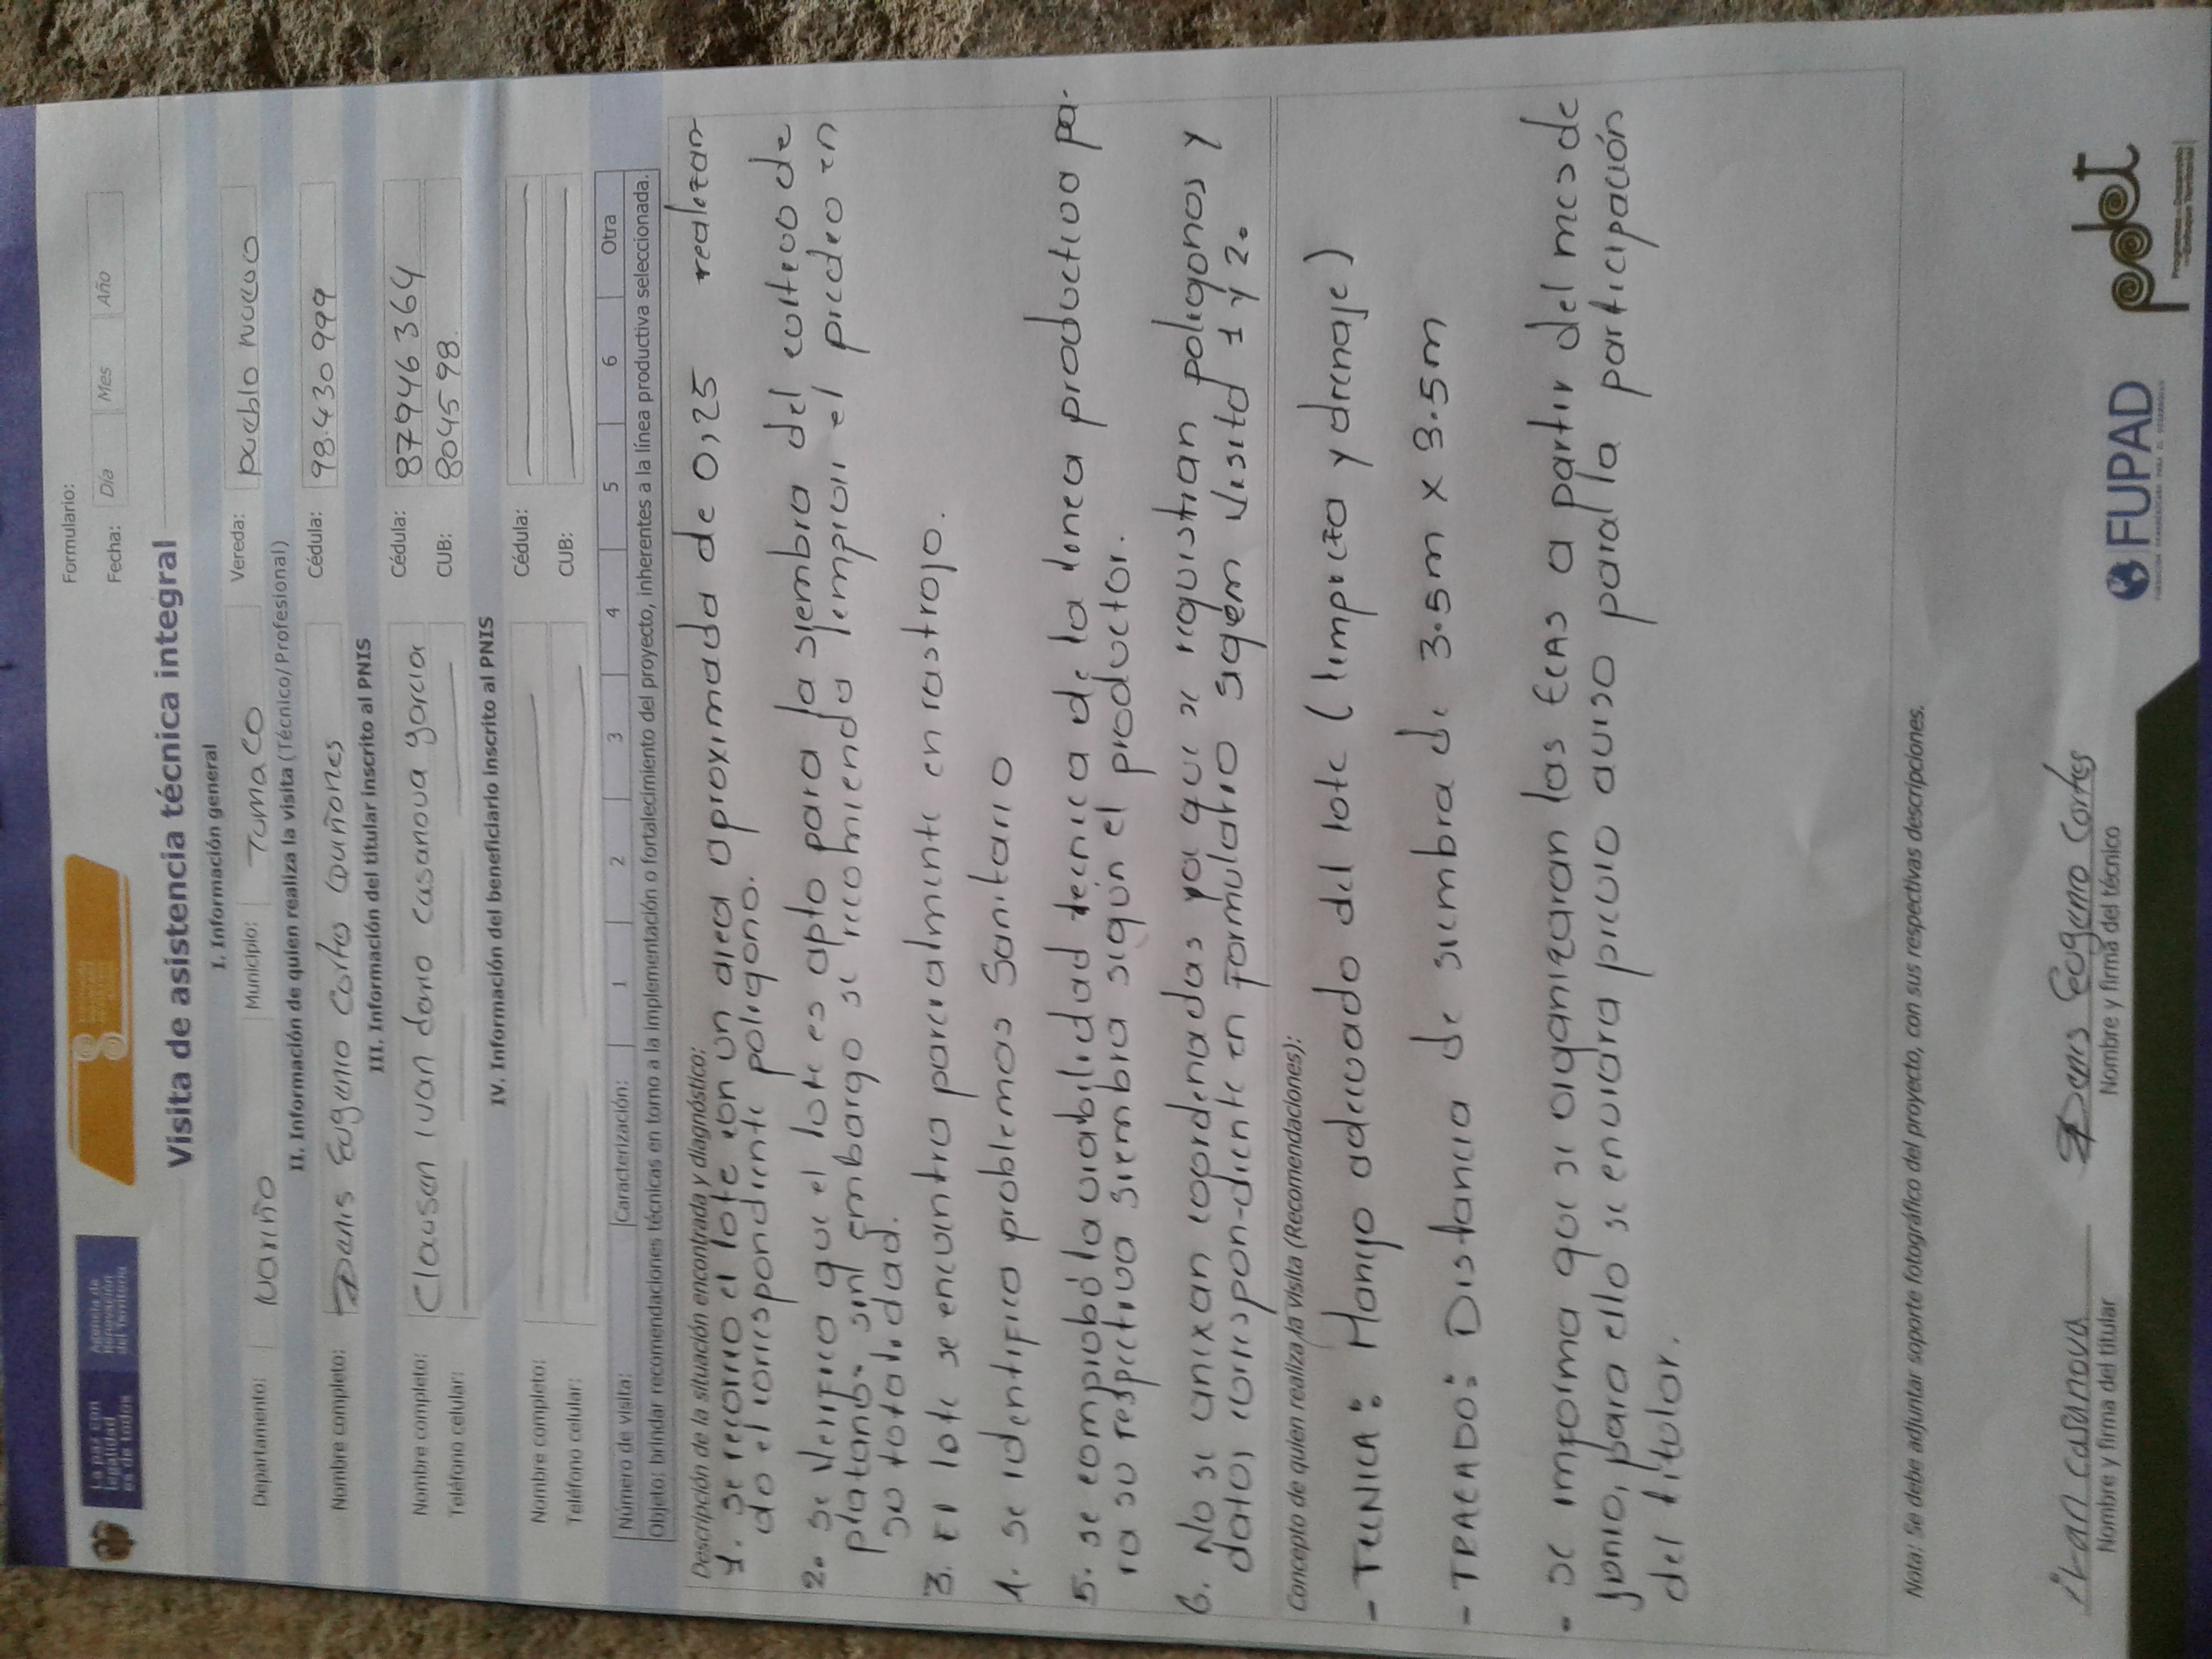 La paz con
legalidad
es de todos
Agencia de
Renovación
del Territorio
Formulario:
Fecha: Día Mes Año
Visita de asistencia técnica integral
I. Información general
Departamento: Nariño Municipio: Tumaco Vereda: pueblo nuevo
II. Información de quien realiza la visita (Técnico/Profesional)
Nombre completo: Danis Eugenio Cortes Quiñones Cédula: 98.430 999
III. Información del titular inscrito al PNIS
Nombre completo: Clausen Ivan dario casanova garcia Cédula: 87946364
Teléfono celular: CUB: 8045 98.
IV. Información del beneficiario inscrito al PNIS
Nombre completo: Cédula:
Teléfono celular: CUB:
Número de visita: Caracterización: 1 2 3 4 5 6 Otra
Objeto: brindar recomendaciones técnicas en torno a la implementación o fortalecimiento del proyecto, inherentes a la línea productiva seleccionada.
Descripción de la situación encontrada y diagnóstico:
1. se recorrio el lote con un area aproximada de 0,25 realizan
do el correspondiente poligono.
2. se verifica que el lote es apto para la siembra del cultivo de
platano. sin embargo se recomienda limpiar el predio en
su totalidad.
3. El lote se encuentra parcialmente en rastrojo.
4. se identifico problemas sanitario
5. se comprobó la viabilidad tecnica de la linea productiva pa-
ra su respectiva siembra según el productor.
6. No se anixan coordenadas ya que se requistran poligonos y
datos correspon-diente en formulario según visita 1 y 2.
Concepto de quien realiza la visita (Recomendaciones):
- TECNICA: Manejo adecuado del lote (limpieza y drenaje)
- TRAZADO: Distancia de siembra de 3.5m x 3.5m
- se informa que se organizaran las ECAS a partir del mes de
junio, para ello se enviara previo aviso para la participación
del titular.
Nota: Se debe adjuntar soporte fotográfico del proyecto, con sus respectivas descripciones.
ivan casanova
Nombre y firma del titular
Danis Eugenio Cortes
Nombre y firma del técnico
FUPAD
pdet